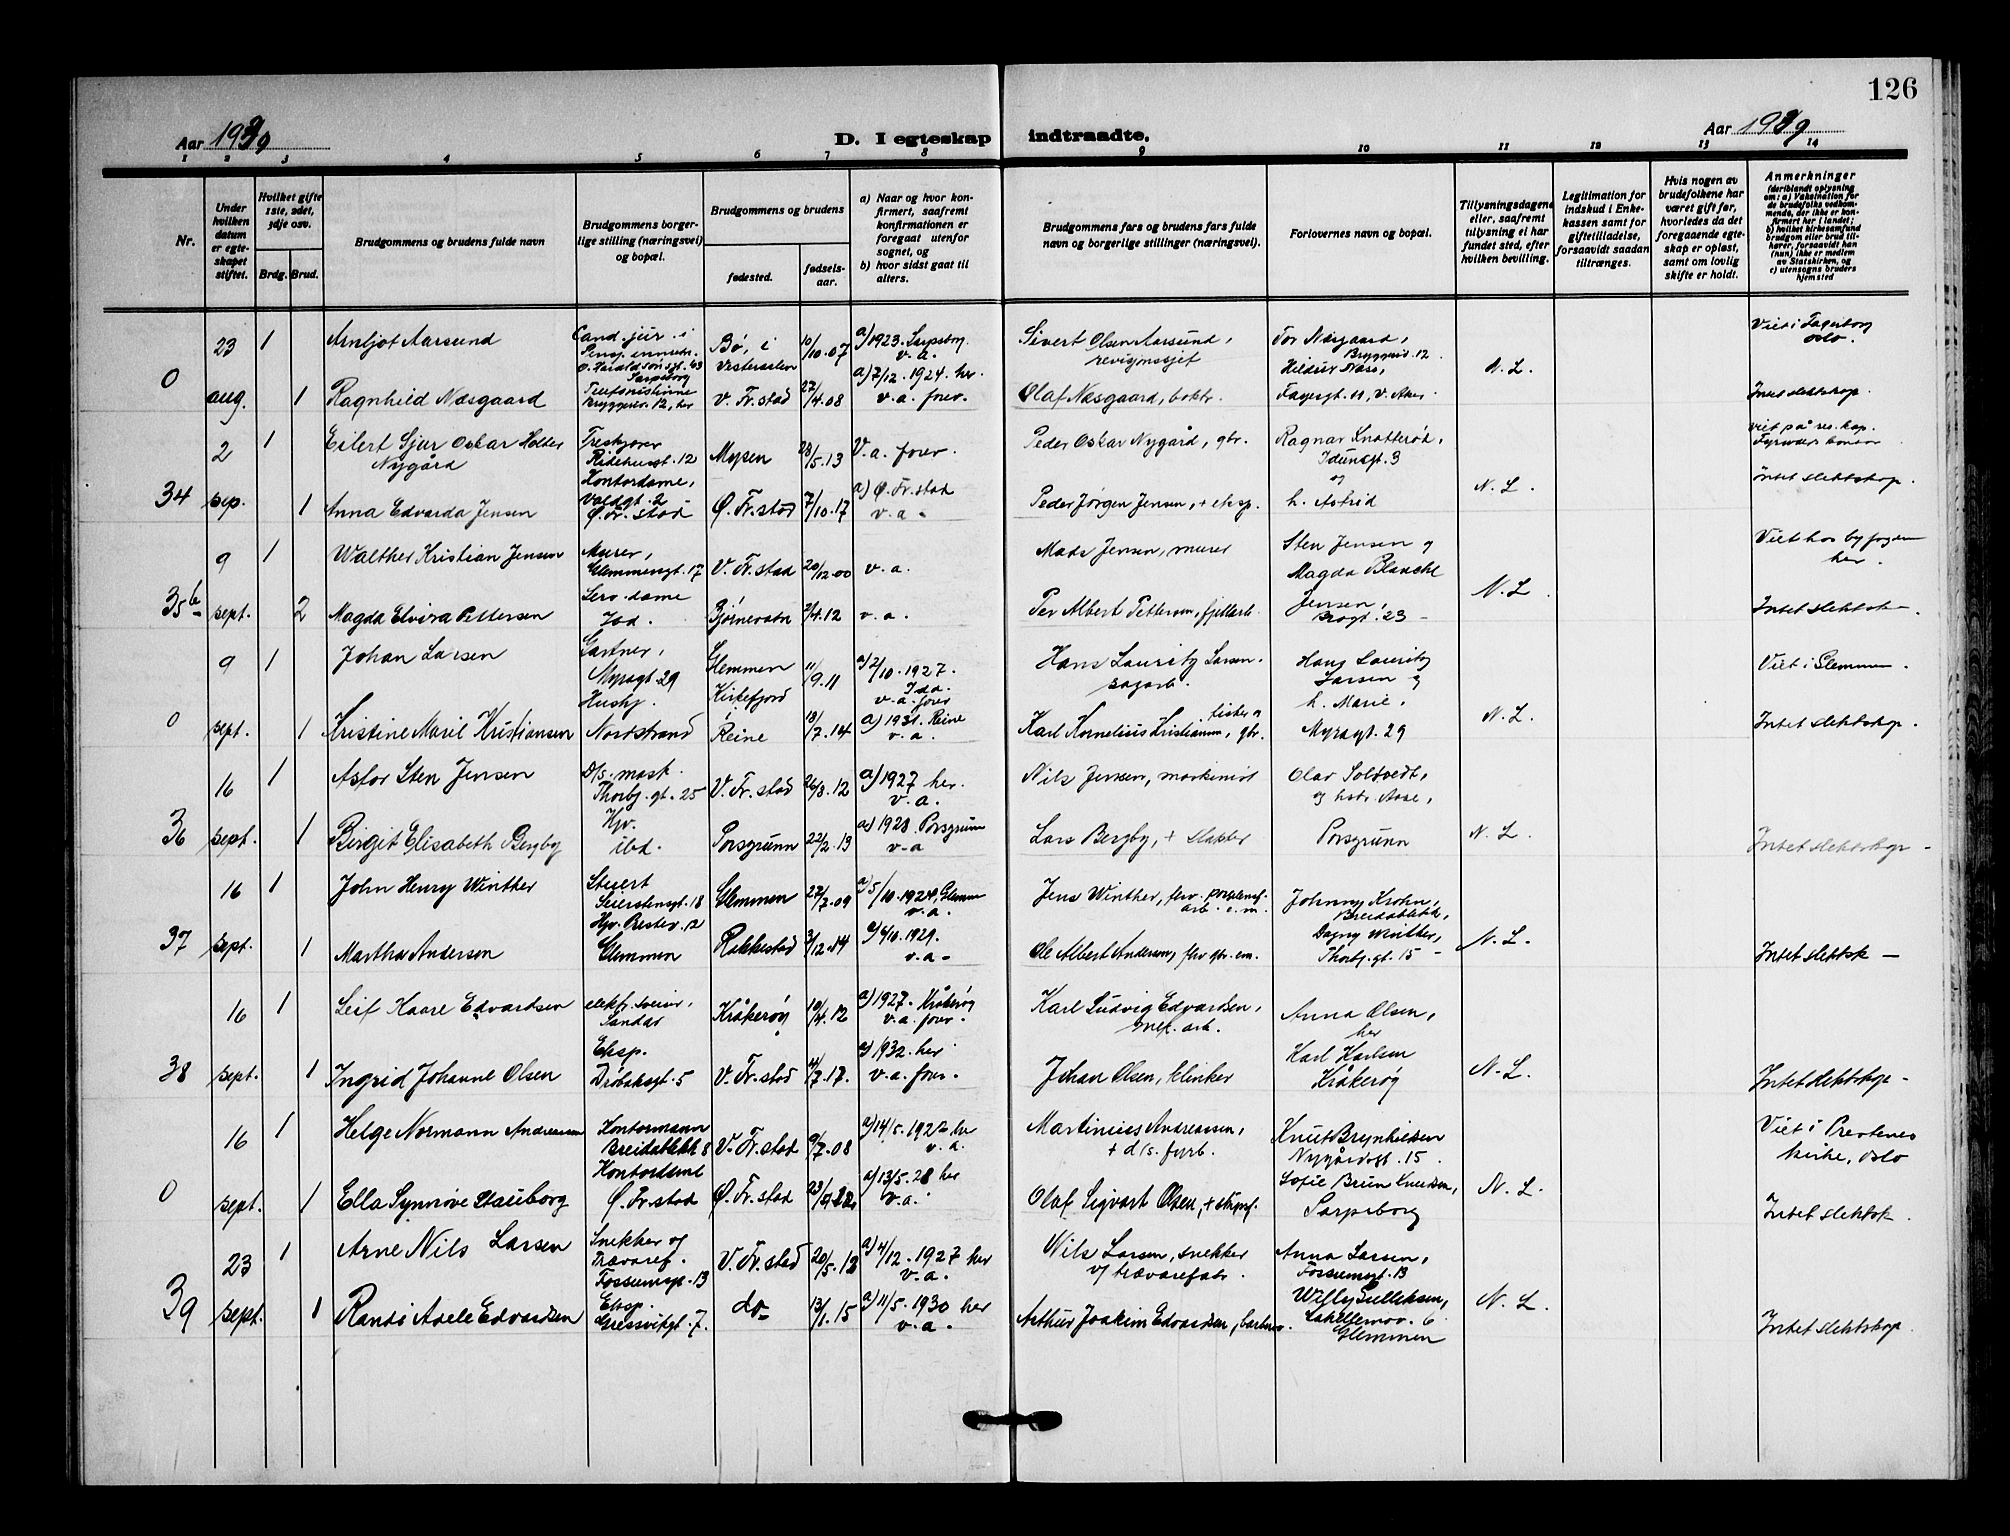 126
Aar 1939
D. I egteskap indtraadte.
Aar 1939
1 2 3 4 5 6 7 8 9 10 11 12 13 14
Nr.
Under hvilken datum er egteskapet stiftet.
Hvilket gifte 1ste, 2det, 3dje osv.
Brdg. Brud.
Brudgommens og brudens fulde navn
Brudgommens borgerlige stilling (næringsvei) og bopæl.
Brudgommens og brudens
fødested.
fødselsaar.
a) Naar og hvor konfirmert, saafremt konfirmationen er foregaat utenfor sognet, og
b) hvor sidst gaat til alters.
Brudgommens fars og brudens fars fulde navn og borgerlige stillinger (næringsvei).
Forlovernes navn og bopæl.
Tillysningsdagene eller, saafremt tillysning ei har fundet sted, efter hvilken bevilling.
Legitimation for indskud i Enkekassen samt for giftetilladelse, forsaavidt saadan tiltrænges.
Hvis nogen av brudefolkene har været gift før, hvorledes da det foregaaende egteskap er opløst, samt om lovlig skifte er holdt.
Anmerkninger
(deriblandt oplysning om: a) Vaksination for de brudefolks vedkommende, der ikke er konfirmert her i landet; b) hvilket kirkesamfund brudgom eller brud tilhører, forsaavidt han (hun) ikke er medlem av Statskirken, og c) utensogns bruders hjemsted
0
23 aug.
1 Arnljot Aarsund
Cand. jur. i
Sarpsborg
Bø, i Vesteraalen 10/10.07
a) 1923. Sarpsborg v. a.
Sivert Olsen Aarsund, revisjonssjef
Tor Næsgaard, Bryggeriv. 12
Hildur Næss,
Fagergt. 11, V. Aker
N. L.
Viet i Fagerborg Oslo.
1 Ragnhild Næsgaard
Telefonistinne
Bryggeriv. 12, her
V. Fr.stad 27/4.08
a) 7/12. 1924. her. v. a. forev.
Olaf Næsgaard, boktr.
Intet slektskap.
34
2 sep.
1 Eilert Sjur Oskar Holter Nygård
Ridehusgt. 12
Mysen 28/5.13
V. a. forev.
Peder Oskar Nygård, gbr.
Ragnar Snotterød, Idunsgt. 3
og h. Astrid
N. L.
viet på res. kap.
kontor
Intet slektskap.
1 Anna Edvarda Jensen
Kontordame,
Voldgt. 2
Ø. Fr. stad
Ø. Fr.stad 7/10.17
a) Ø. Fr. stad v. a.
Peder Jørgen Jensen, + eksp.
35b
9 sept.
1 Walther Kristian Jensen
Murer,
Glemmengt. 17
V. Fr.stad 20/12.00
v. a.
Mads Jensen, murer
Sten Jensen og
Magda Blanche Jensen,
Brogt. 23
N. L.
Viet hos byfogden her.
2 Magda Elvira Pettersen
Serv. dame
Ibd.
Bjørnevatn 2/4.12
v. a.
Per Albert Pettersen, fjellarb.
Intet slektsk
0
9 sept.
1 Johan Larsen
Gartner,
Myragt. 29
Glemmen 11/9.11
a) 2/10. 1927.
v. a. forev
Hans Lauritz Larsen. sagarb.
Hans Lauritz Larsen og
h. Marie,
Myragt. 29
N. L.
Viet i Glemmen.
1 Kristine Marie Kristiansen
Hushj.
Nordstrand
Kirkefjord i Reine 18/7.14
a) 1931. Reine v. a.
Karl Kornelius Kristiansen, fisker og gbr.
Intet slektskap.
36
16 sept.
1 Astor Sten Jensen
D/s. mask.
Thorbj. gt. 25
V. Fr. stad 26/8.12
a) 1927 her. v. a.
Nils Jensen, maskinist
Olav Soltvedt,
og hstr. Aase,
Porsgrunn
N. L.
1 Birgit Elisabeth Bergby
Hjv.
ibd.
Porsgrunn 22/2.13
a) 1928. Porsgrunn v. a
Lars Bergby, + slakter
Intet slektskap
37
16 sept.
1 John Henry Winther
Stuert
Seierstensgt. 18
Glemmen 27/7.09
a) 5/10. 1924, Glemmen v. a.
Jens Winther, fhv. porselensf. arb. e. m.
Johnny Krohn, Breidablikk,
Dagny Winther, Thorbj. gt. 15
N. L.
1 Martha Andersen
Hjv. Prestev. 12
Glemmen
Rakkestad 3/12.14
a) 4/10. 1929. v. a.
Ole Albert Andersen, fhv gbr. em.
Intet slektsk
38
16 sept.
1 Leif Kaare Edvardsen
elektr. sveiser,
Sandar
Kråkerøy 10/4.12
a) 1927. Kråkerøy v. a. forev.
Karl Ludvig Edvardsen, mek. arb.
Anna Olsen, her
Karl Karlsen
Kråkerøy
N. L.
1 Ingrid Johanne Olsen
Eksp.
Drøbakgt. 5
V. Fr. stad 4/7.17.
a) 1932. her v. a. forev.
Johan Olsen, klinker
Intet slektskap
0
16 sept.
1 Helge Normann Andreassen
Kontormann
Breidablikk 8
V. Fr. stad 9/7.08
a) 14/5. 1922 her v. a.
Martinius Andreassen, + d/s. fyrb.
Knut Brynhildsen
Nygårdsgt. 15
Sofie Brun Knudsen,
Sarpsborg
N. L.
Viet i Prestenes kirke, Oslo
1 Ella Synnøve Stauborg
Kontordame
Ø. Fr. stad
Ø. Fr. stad
a) 13/5. 28 her v. a.
Olaf Sigvart Olsen,
Intet slektsk.
39
23 sept.
1 Arne Nils Larsen
Snekker og
Trævaref.
Fossumsgt. 13
V. Fr. stad 20/5.12
a) 4/12. 1927 her v. a.
Nils Larsen, snekker v/ trævarefabr.
Anna Larsen,
Fossumsgt. 13
Willy Gulliksen,
Glemmen
N. L.
1 Randi Adele Edvardsen
Eksp.
Gressvikgt. 7.
do 13/1.15
a) 11/5. 1930 her v. a.
Arthur Joakim Edvardsen, barberer.
Intet slektskap.